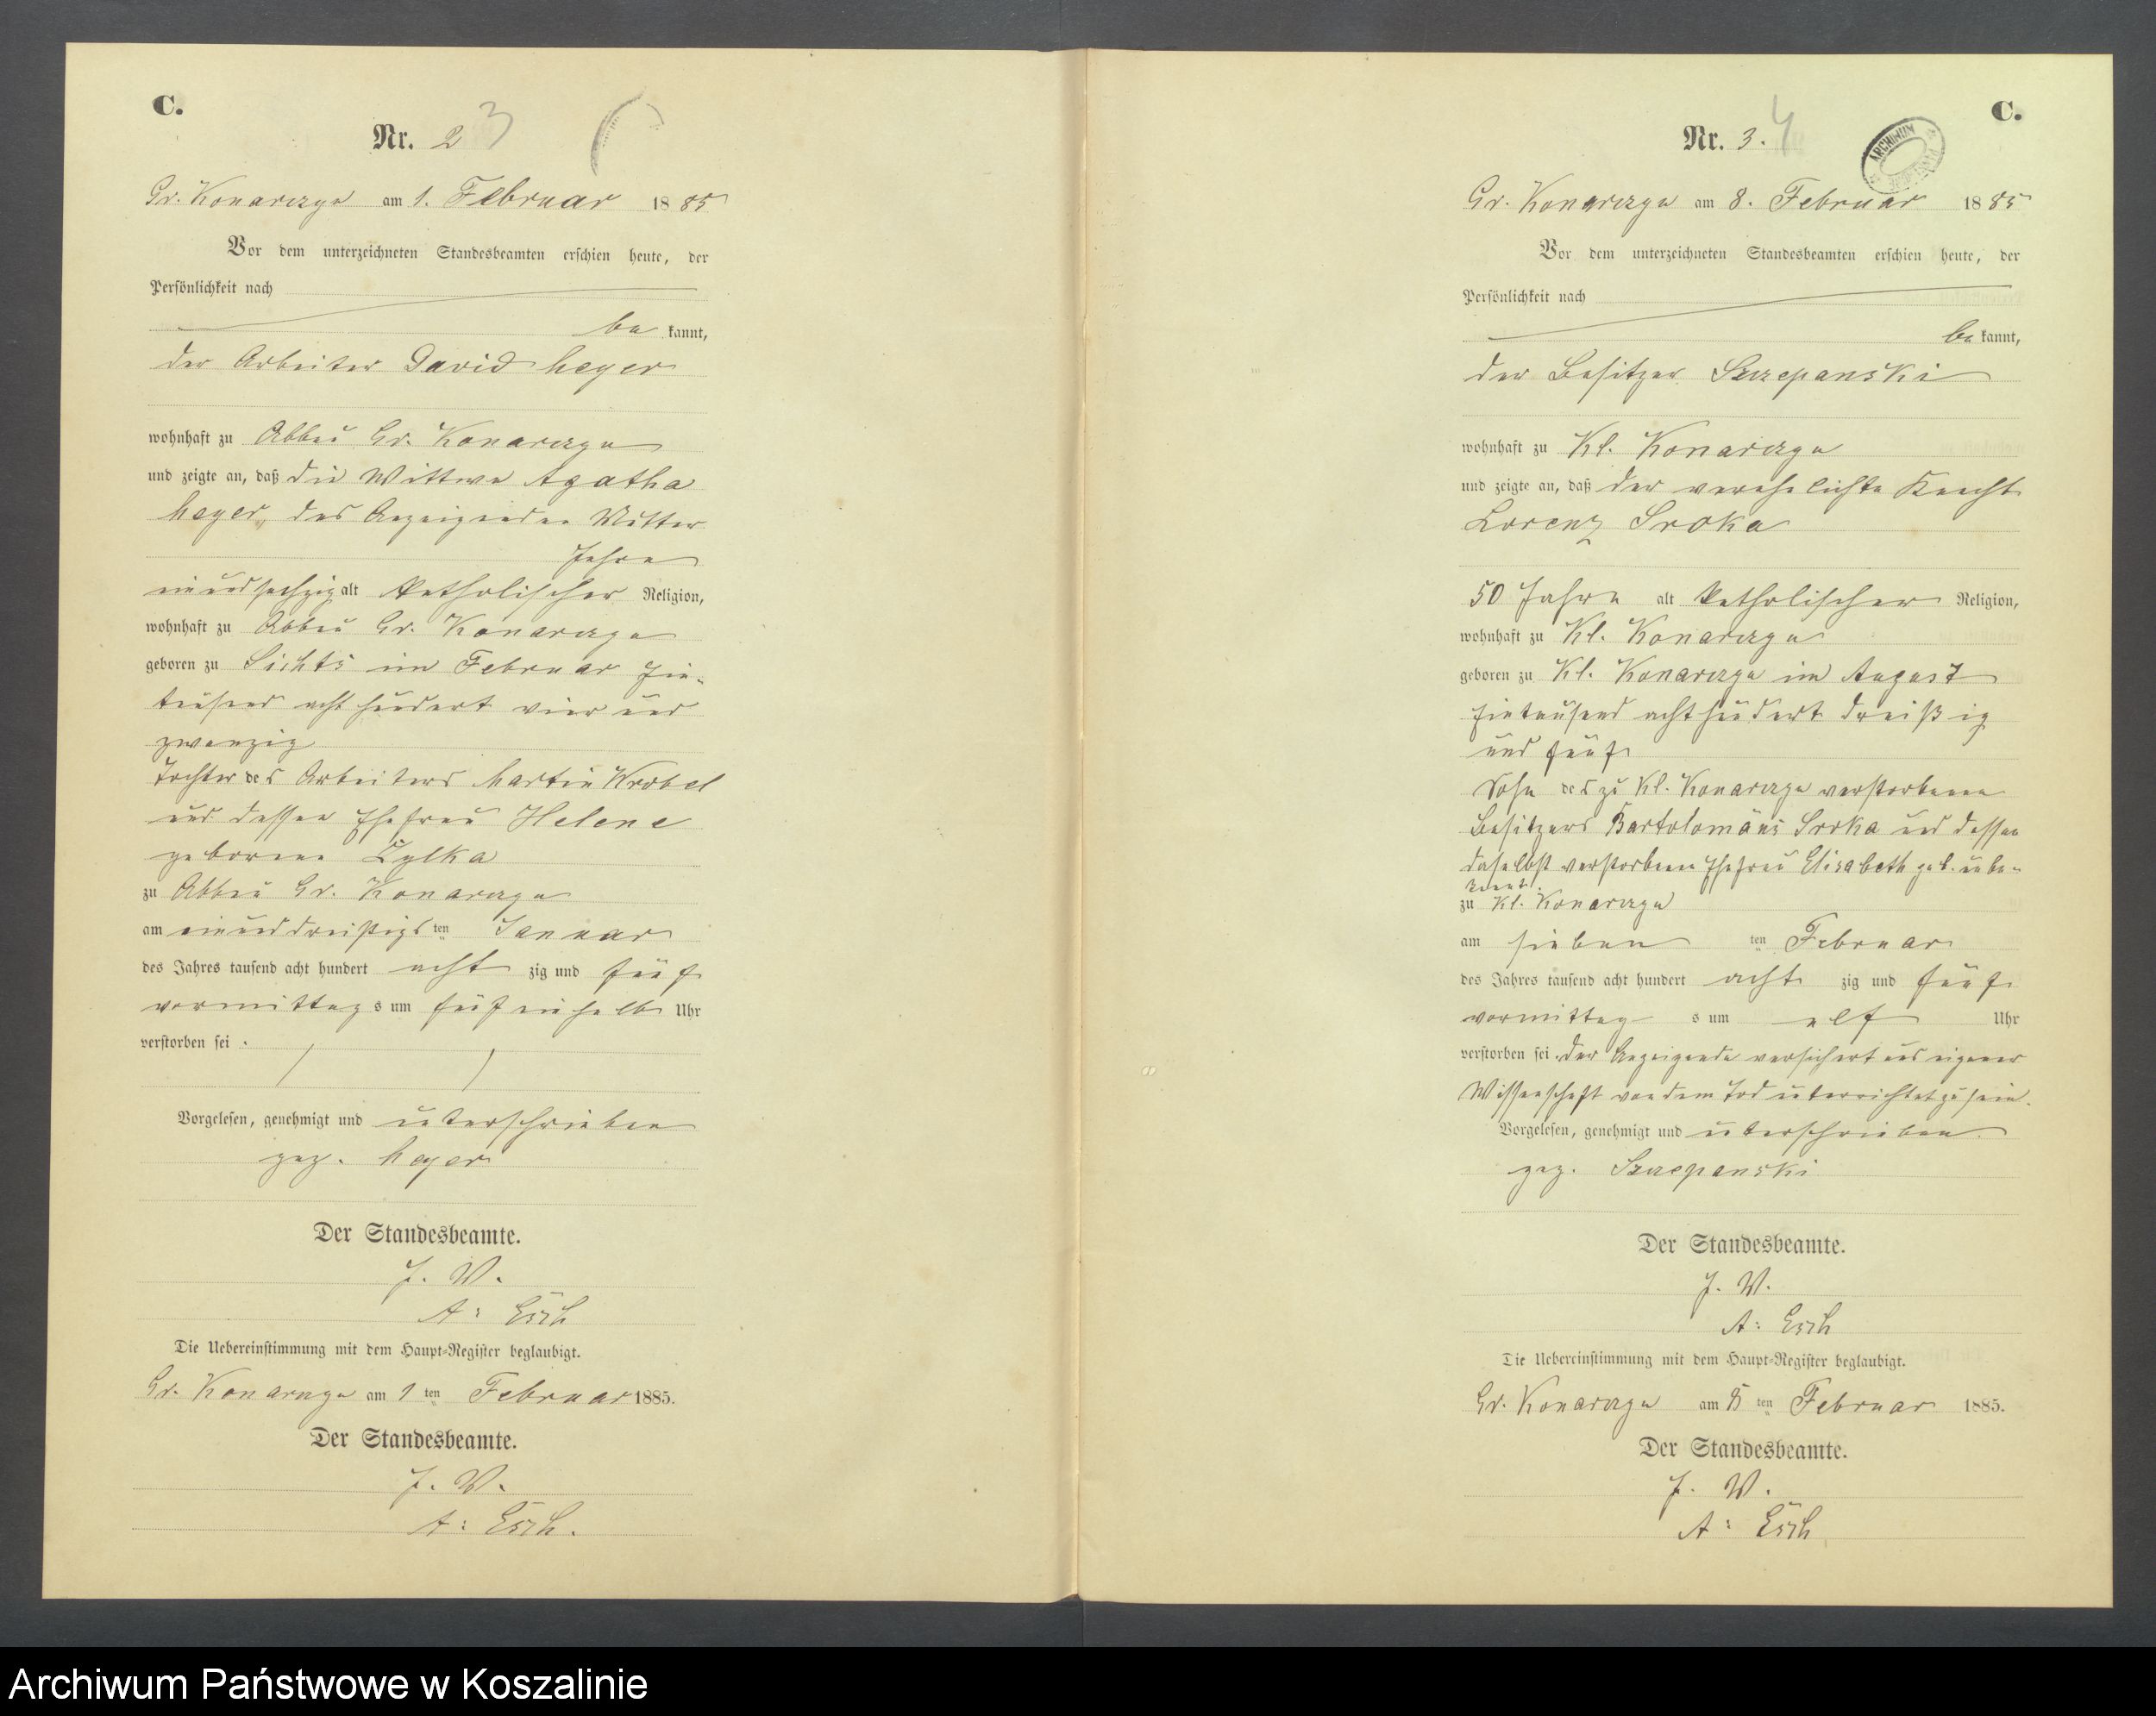 C.
Nr. 2 3
Gr. Konarczyn am 1. Februar 1885
Vor dem unterzeichneten Standesbeamten erschien heute, der
Persönlichkeit nach
be kannt,
der Arbeiter David Heyer
wohnhaft zu Abbau Gr. Konarczyn
und zeigte an, daß die Wittwe Agatha
Heyer, des Anzeigenden Mutter
Jahre
einundsechzig alt katholischer Religion,
wohnhaft zu Abbau Gr. Konarczyn
geboren zu Lichts im Februar Ein-
tausend acht hundert vier und
zwanzig
Tochter des Arbeiters Martin Wrobel
und dessen Ehefrau Helene
geborene Zylka
zu Abbau Gr. Konarczyn
am einunddreißigsten Januar
des Jahres tausend acht hundert acht zig und fünf
vormittags um fünf einhalb Uhr
verstorben sei.
Vorgelesen, genehmigt und unterschrieben
gez. Heyer
Der Standesbeamte.
J. V.
A: Esch
Die Uebereinstimmung mit dem Haupt-Register beglaubigt.
Gr. Konarczyn am 1 ten Februar 1885.
Der Standesbeamte.
J. V.
A: Esch.
C.
Nr. 3. 4
ARCHIWUM
Gr. Konarczyn am 8. Februar 1885
Vor dem unterzeichneten Standesbeamten erschien heute, der
Persönlichkeit nach
be kannt,
der Besitzer Szczepanski
wohnhaft zu Kl. Konarczyn
und zeigte an, daß der verehelichte Knecht
Lorenz Sroka
50 Jahre alt katholischer Religion,
wohnhaft zu Kl. Konarczyn
geboren zu Kl. Konarczyn im August
Eintausend achthundert dreißig
und fünf
Sohn des zu Kl. Konarczyn verstorbenen
Besitzers Bartolomäus Sroka und dessen
daselbst verstorbenen Ehefrau Elisabeth geb. unbe-
kannt.
zu Kl. Konarczyn
am sieben ten Februar
des Jahres tausend acht hundert acht zig und fünf
vormittag s um elf Uhr
verstorben sei. Der Anzeigende versichert aus eigener
Wissenschaft von dem Tod unterrichtet zu sein.
Vorgelesen, genehmigt und unterschrieben.
gez. Szczepanski
Der Standesbeamte.
J. V.
A: Esch
Die Uebereinstimmung mit dem Haupt-Register beglaubigt.
Gr. Konarczyn am 8 ten Februar 1885.
Der Standesbeamte.
J. V.
A: Esch
Archiwum Państwowe w Koszalinie